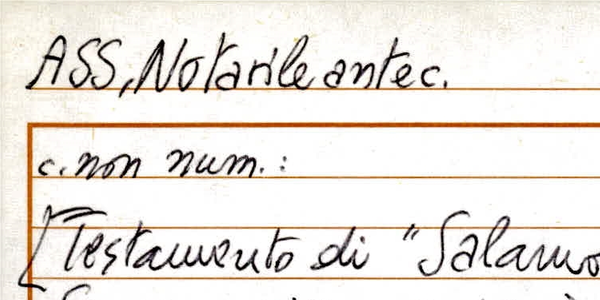 ASS, Notarile antec.
c. non num.:
[Testamento di "Salamo